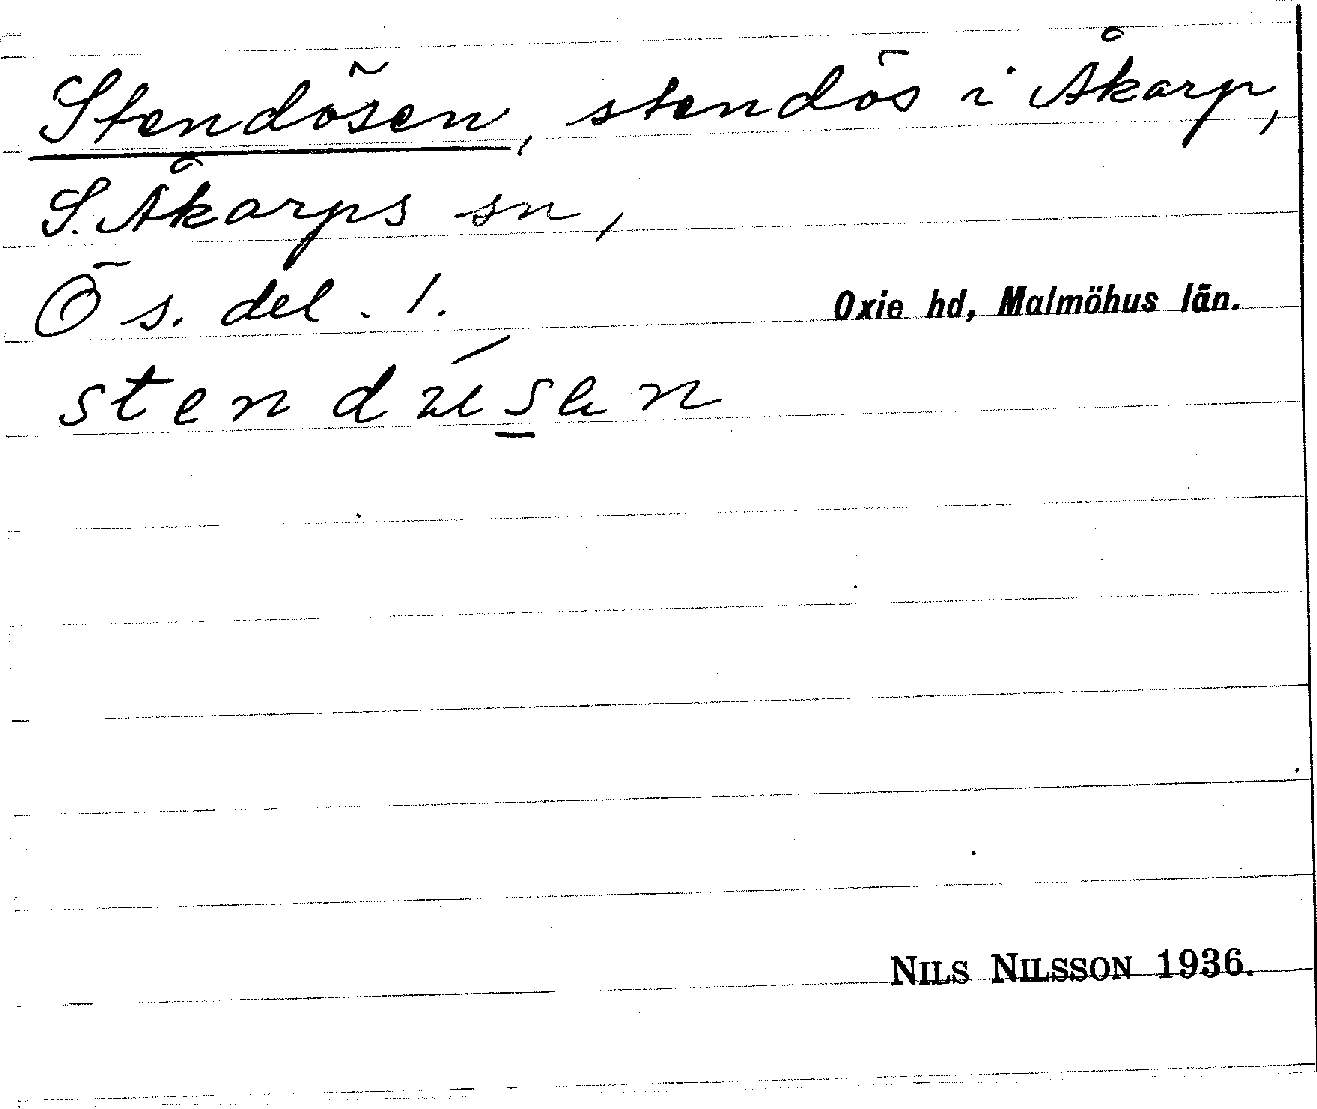 Stendösen, stendös i Åkarp,
S. Åkarps sn,
Ö s. del. 1. Oxie hd, Malmöhus län.
NILS NILSSON 1936.